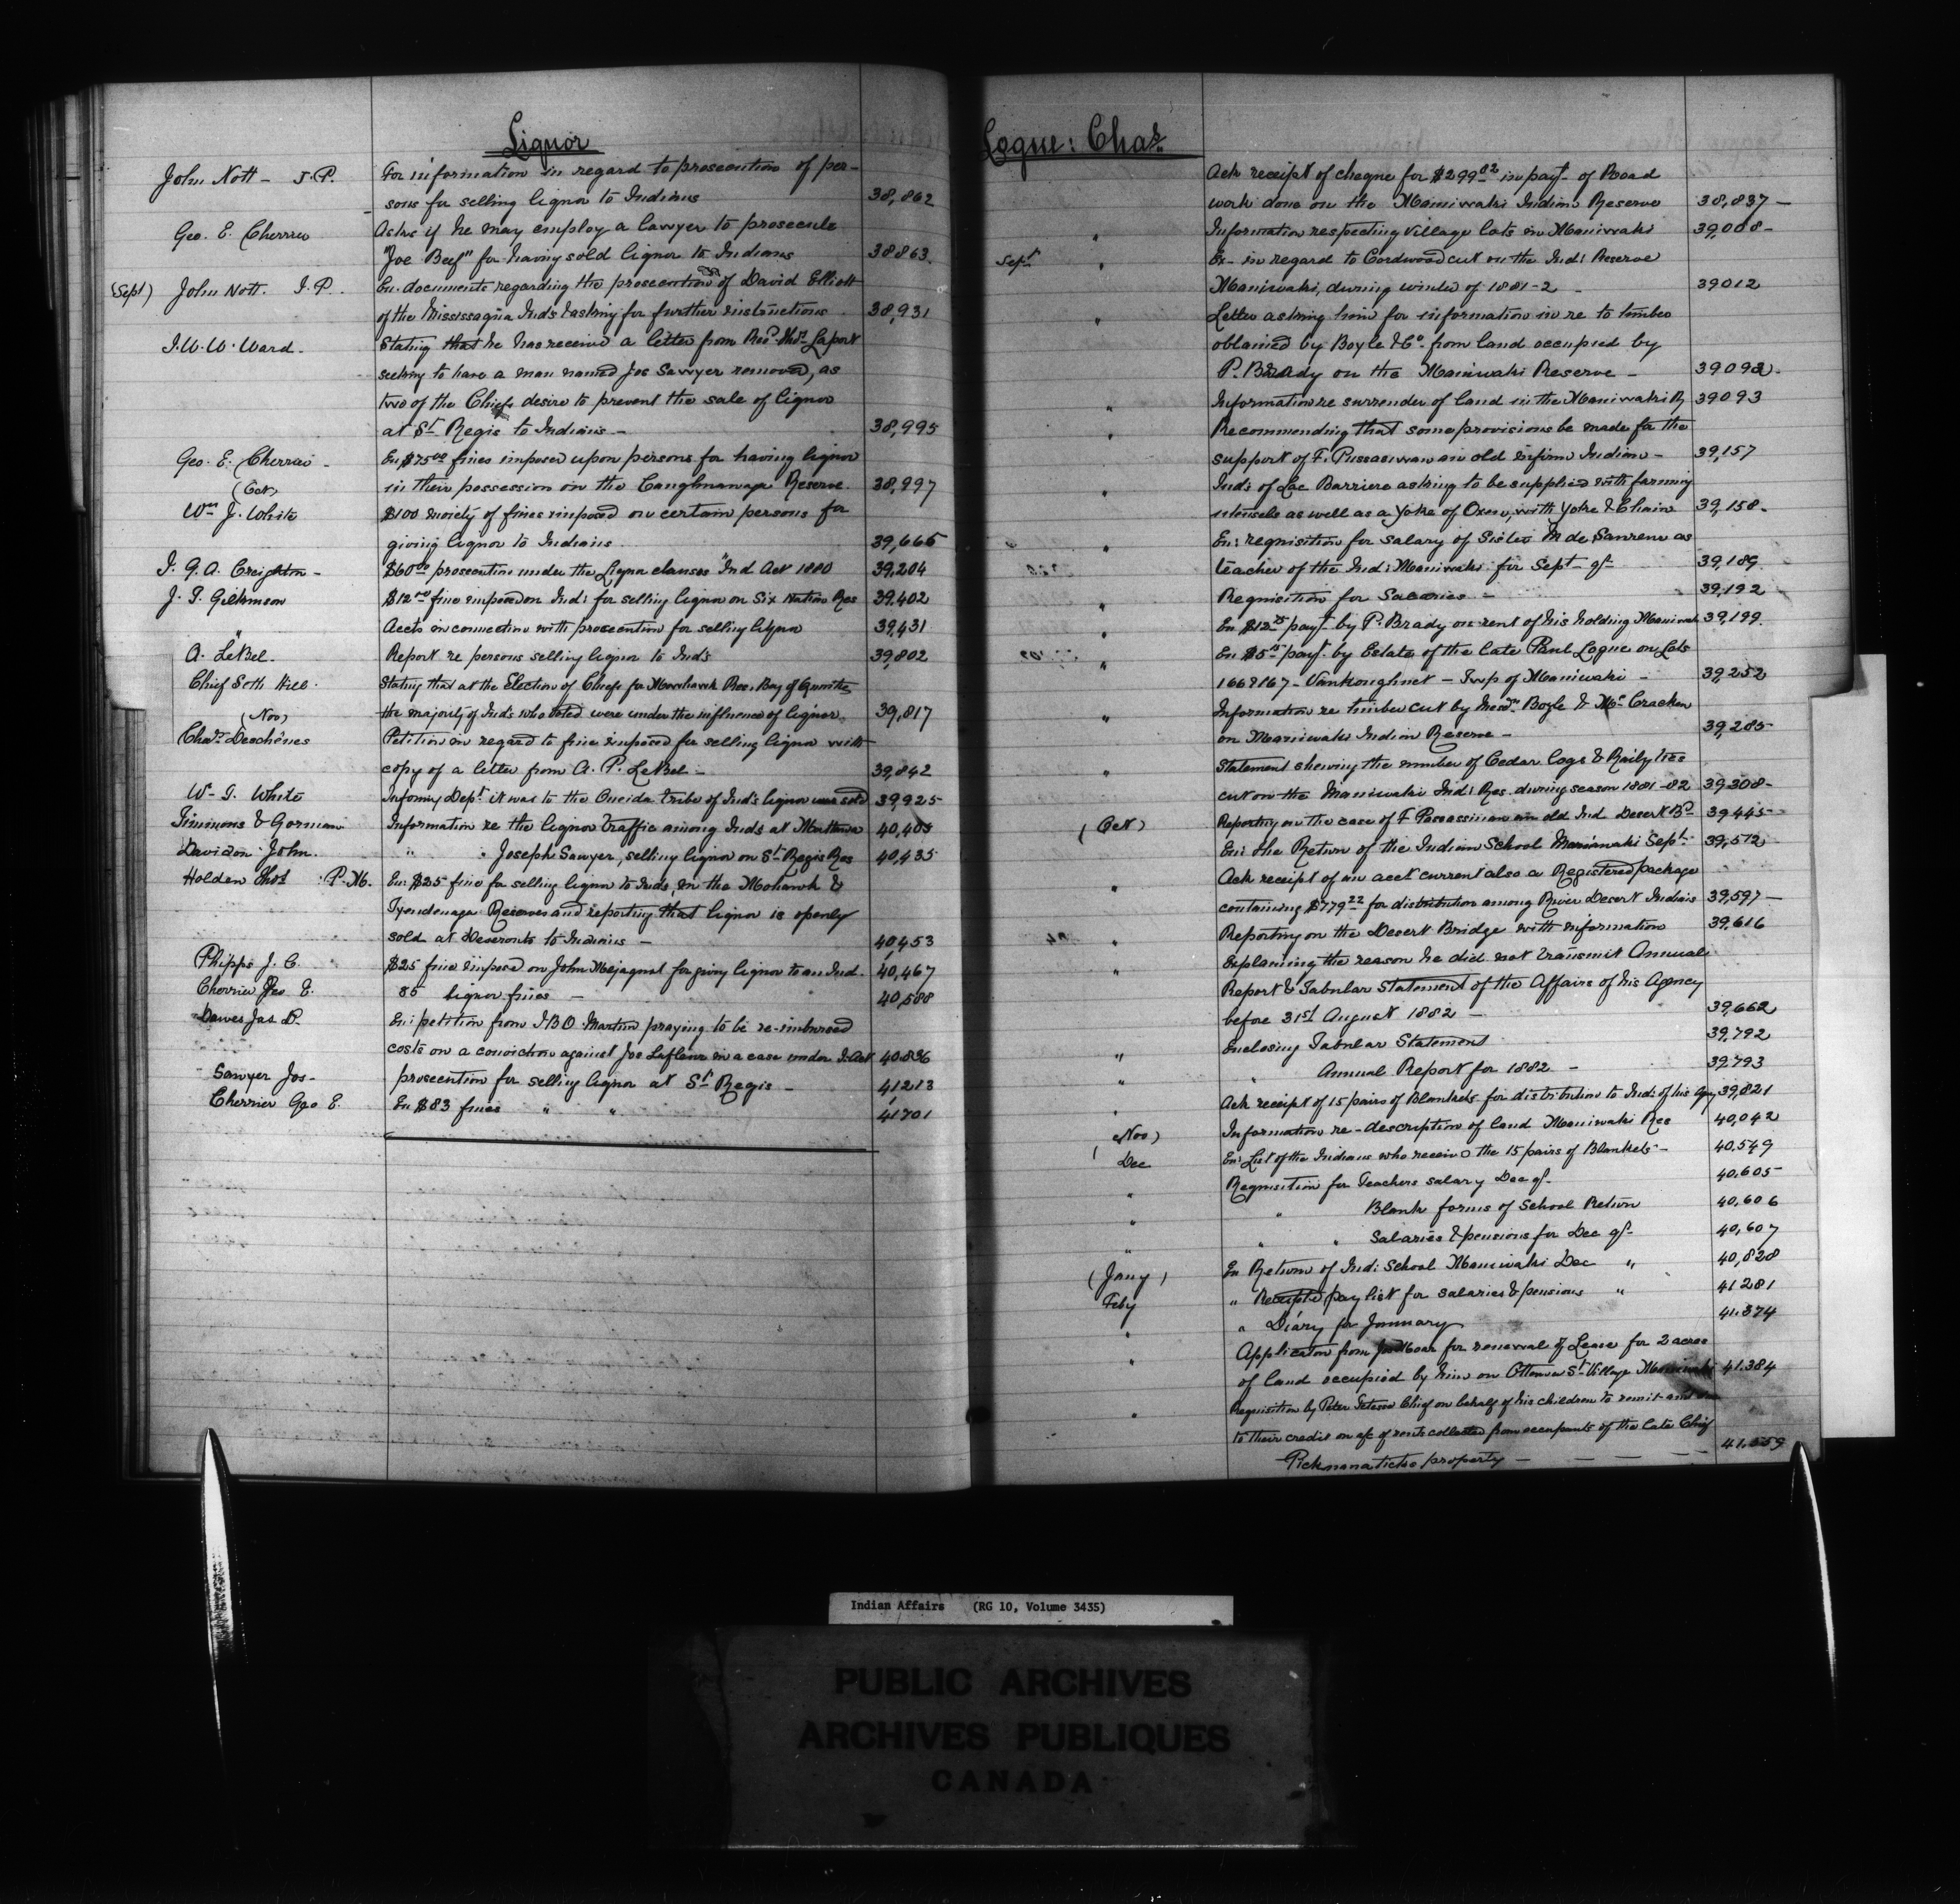 Liquor
John Nott - J.P. For information in regard to prosecution of per-
sons for selling liquor to Indians 38,862
Geo. E. Cherrier Asks if he may employ a lawyer to prosecute
"Joe Beef" for having sold liquor to Indians 38863
(Sept) John Nott. J.P. En. documents regarding the prosecution of David Elliott
of the Mississagua Inds & asking for further instructions 38,931
J.W.W. Ward. Stating that he has received a letter from Revd. Mr. Laport
seeking to have a man named Jos Sawyer removed, as
two of the Chiefs desire to prevent the sale of liquor
at St Regis to Indians - 38,995
Geo. E. Cherrier - En $75.00 fines imposed upon persons for having liquor
in their possession on the Caughnawaga Reserve. 38,997
(Oct)
Wm J. White $100 moiety of fines imposed on certain persons for
giving liquor to Indians 39,665
J. G. A. Creighton - $60.00 prosecution under the Liquor clauses Ind Act 1880 39,204
J. T. Gilkinson $12.00 fine imposed on Ind: for selling liquor on Six Nation Res 39,402
" Accts in connection with prosecution for selling liquor 39,431
A. LeBel. Report re persons selling liquor to Inds 39,802
Chief Seth Hill. Stating that at the Election of Chiefs for Mowhawk Res. Bay of Quinte
the majority of Inds who voted were under the influence of liquor. 39,817
(Nov)
Chas. Deschênes Petition in regard to fine imposed for selling liquor with
copy of a letter from A. P. LeBel - 39,842
W. J. White Informing Dept. it was to the Oneida tribe of Inds liquor was sold 39,925
Timmons & Gorman Information re the liquor traffic among Inds at Mattawa 40,405
Davidson John. " " Joseph Sawyer, selling liquor on St Regis Res 40,435
Holden Thos P.M. En: $25 fine for selling liquor to Inds, on the Mohawk &
Tyendenaga Reserves and reporting that liquor is openly
sold at Deseronto to Indians - 40,453
Phipps J. C. $25 fine imposed on John Mejaquat for giving liquor to an Ind. 40,467
Cherrier Geo E. 85 liquor fines - 40,588
Dawes Jas P. En: petition from J.B.O. Martin praying to be re-imbursed
costs on a conviction against Jos Lafleur in a case under I. Act 40836
Sawyer Jos - prosecution for selling liquor at St Regis - 41213
Cherrier Geo E. En $83 fines " " 41701
Logue: Chas.
Ack receipt of cheque for $299.82 in payt of Road
work done on the Maniwaki Indian Reserve 38,837 -
" Information respecting village lots in Maniwaki 39,008 -
Sept " Ex- in regard to Cordwood cut on the Ind: Reserve
Maniwaki, during winter of 1881-2 - 39012
" Letter asking him for information in re to timber
obtained by Boyle & Co. from land occupied by
P. Brady on the Maniwaki Reserve - 39092 -
" Information re surrender of land in the Maniwaki R 39093
" Recommending that some provisions be made for the
support of F. Pussasiwan an old infirm Indian - 39,157
" Inds of Lac Barriere asking to be supplied with farming
utensels as well as a yoke of Oxen, with yoke & Chain 39,158 -
" En: requisition for salary of Sister M de Sanrene as
teacher of the Ind: Maniwaki for Sept qr 39,189
" Requisition for Salaries - 39,192
" En $12.75 payt by P. Brady on rent of his holding Maniwaki 39,199
" En $5.15 payt by Estate of the late Paul Logue on Lots
166 & 167 - Vankoughnet - Twp of Maniwaki - 39,252
" Information re timber cut by Messrs Boyle & McCracken
on Maniwaki Indian Reserve - 39,285
" Statement shewing the number of Cedar logs & Raily ties
cut on the Maniwaki Ind: Res. during season 1881-82 39308 -
(Oct) Reporting on the case of F Passassiwan an old Ind. Desert Bd 39445
" En: the Return of the Indian School Maniwaki Sept. 39,572
" Ack receipt of an acct current also a Registered package
containing $779.22 for distribution among River Desert Indians 39,597 -
" Reporting on the Desert Bridge with information 39,616
" Explaining the reason he did not transmit Annual
Report & Tabular Statement of the Affairs of his Agency
before 31st August 1882 - 39,662
" Enclosing Tabular Statement 39,792
" " Annual Report for 1882 - 39,793
" Ack receipt of 15 pairs of Blankets for distribution to Ind: of his Agy 39,821
(Nov) Information re-description of land Maniwaki Res 40,042
( Dec En: List of the Indians who received the 15 pairs of Blankets - 40,549
" Requisition for Teachers salary Dec qr. 40.605
" " Blank forms of School Return 40,606
" " " Salaries & pensions for Dec qr 40,607
(Jany) En Return of Ind: School Maniwaki Dec " 40,828
Feby " Receipted pay list for salaries & pensions " 41281
" " Diary for January 41.374
" Application from Jno Moar for renewal of Lease for 2 acres
of land occupied by him on Ottawa St Village Maniwaki 41.384
" Requisition by Peter Tetesse Chief on behalf of his children to remit amt
to their credit on a/c of rents collected from occupants of the late Chief
property - - - - 41.559
Indian Affairs (RG 10, Volume 3435)
PUBLIC ARCHIVES
ARCHIVES PUBLIQUES
CANADA